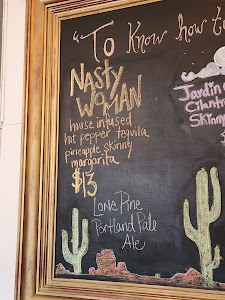 "To Know how t
NASTY
WOMAN
house infused
hot pepper tequila
pineapple skinny
margarita
$13
Lone Pine
Portland Pale
Ale
Jardin
Cilantro
Skinny